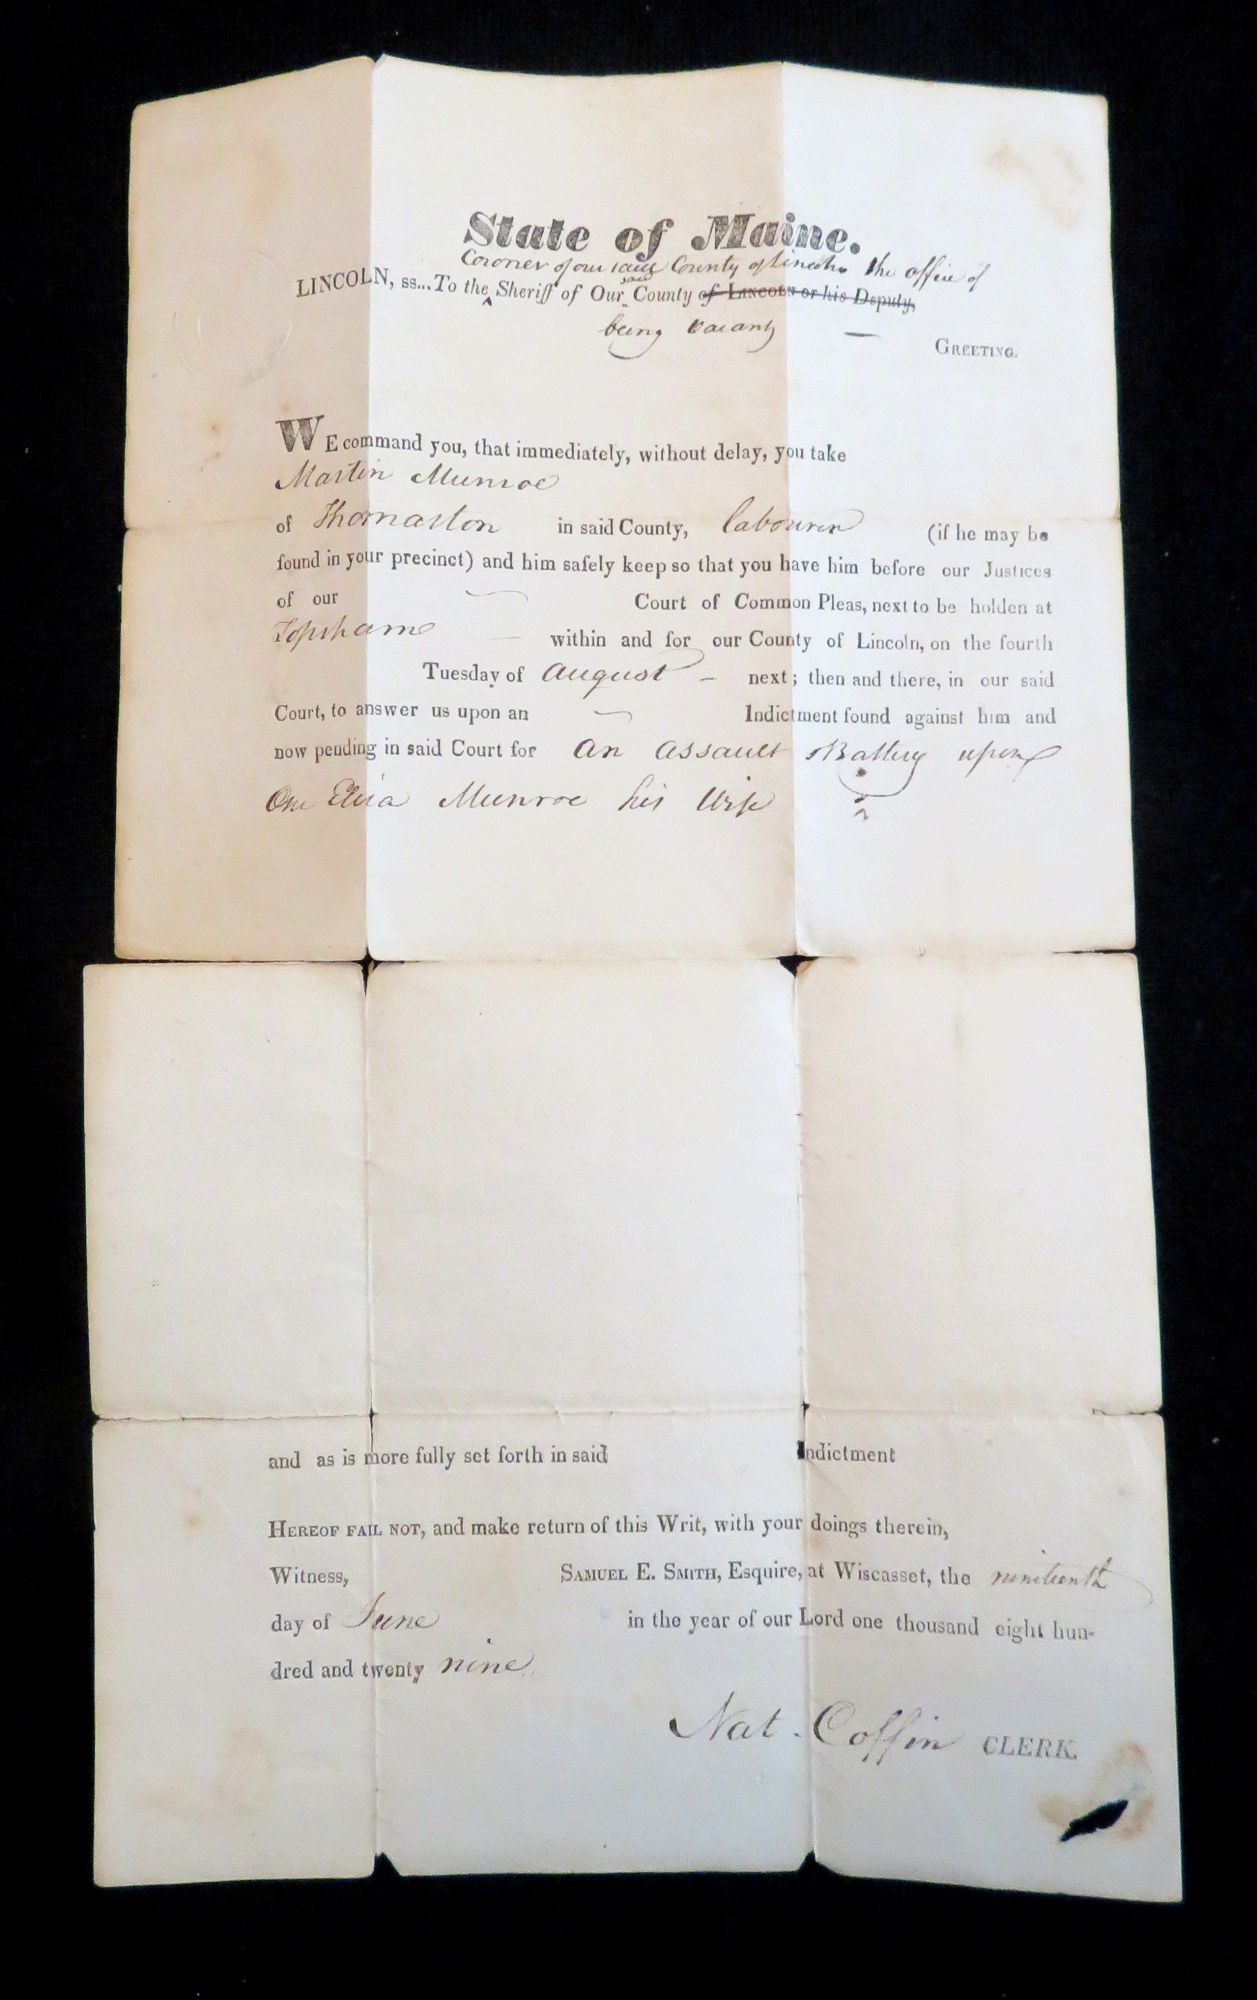 State of Maine.
Coroner of our said County of Lincoln the office of
LINCOLN, ss... To the ^ Sheriff of Our said County of LINCOLN or his Deputy,
being vacant —
GREETING.
WE command you, that immediately, without delay, you take
Martin Munroe
of Thomaston in said County, labourer (if he may be
found in your precinct) and him safely keep so that you have him before our Justices
of our Court of Common Pleas, next to be holden at
Topsham within and for our County of Lincoln, on the fourth
Tuesday of August – next; then and there, in our said
Court, to answer us upon an Indictment found against him and
now pending in said Court for an assault & Battery upon
One Eliza Munroe his Wife
and as is more fully set forth in said Indictment
HEREOF FAIL NOT, and make return of this Writ, with your doings therein,
Witness, SAMUEL E. SMITH, Esquire, at Wiscasset, the nineteenth
day of June in the year of our Lord one thousand eight hun-
dred and twenty nine.
Nat. Coffin CLERK.